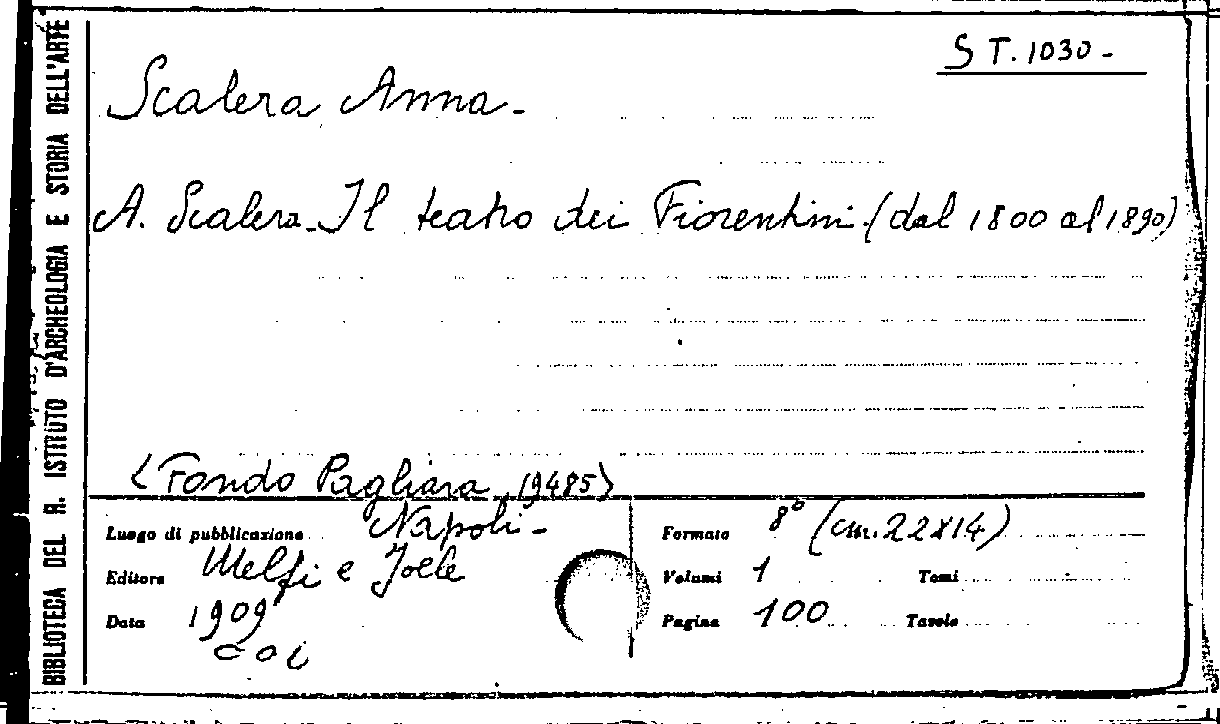 BIBLIOTECA DEL R. ISTITUTO D'ARCHEOLOGIA E STORIA DELL'ARTE
ST.1030-
Scalera Anna-
A. Scalera-Il teatro dei Fiorentini (dal 1800 al 1890)
(Fondo Pagliara, 19485)
Luogo di pubblicazione Napoli-
Editore Melfi e Joele
Data 1909
Formato 8° (cm. 22x14)
Volumi 1 Tomi
Pagine 100 Tavole